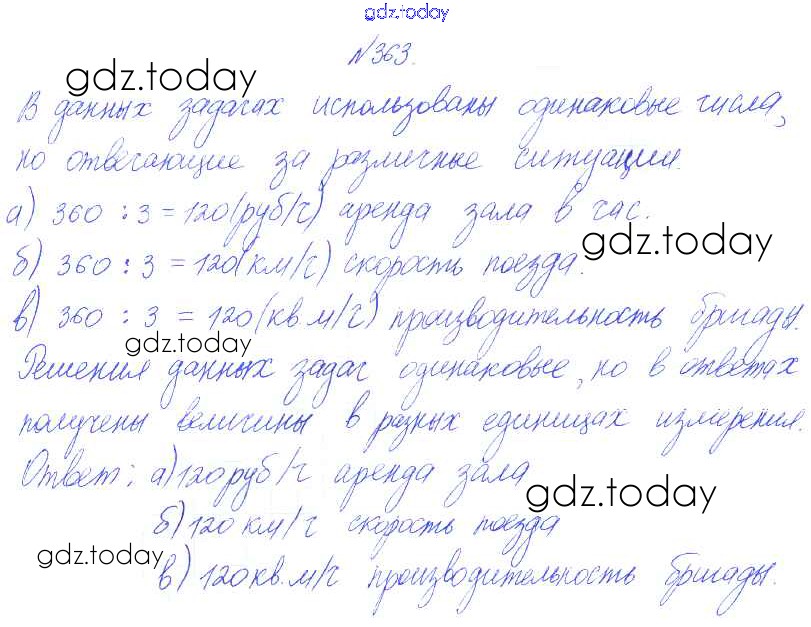 gdz.today
№363.
gdz.today
В данных задачах использованы одинаковые числа,
но отвечающие за различные ситуации.
а) 360 : 3 = 120(руб/ч) аренда зала в час.
gdz.today
б) 360 : 3 = 120(км/ч) скорость поезда.
в) 360 : 3 = 120(кв.м/ч) производительность бригады.
gdz.today
Решения данных задач одинаковые, но в ответах
получены величины в разных единицах измерения.
Ответ: а) 120 руб/ч аренда зала
gdz.today
б) 120 км/ч скорость поезда
gdz.today
в) 120 кв.м/ч производительность бригады.